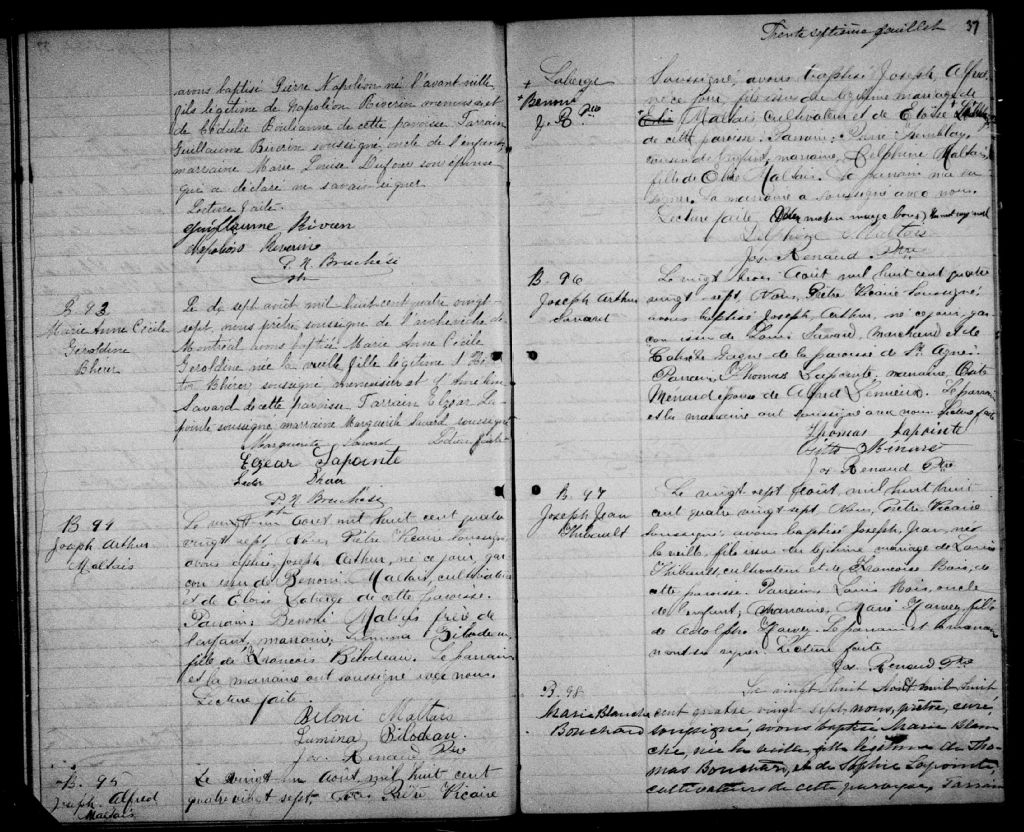 avons baptisé Pierre Napoléon né l'avant veille
fils légitime de Napoléon Riverin menuisier et
de Elodulie Boulianne de cette paroisse Parrain
Guillaume Riverin soussigné, oncle de l'enfant
marraine Marie Louise Dufour son épouse
qui a déclaré ne savoir signer
Lecture faite.
Guillaume Riverin
Napoléons Reverine
P. N. Bruchési
ptr
B 93
Marie Anne Cécile
Géraldine
Bherer
Le dix sept août mil huit cent quatre vingt
sept, nous prêtre soussigné de l'archevêché de
Montréal avons baptisé Marie Anne Cécile
Géraldine née la veille fille légitime
Bherer soussigné menuisier et d'Anne
Savard de cette paroisse Parrain Elzear La
pointe soussigné marraine Marguerite Savard soussignée
Marguerite Savard Lecture faite
Elzear Lapointe
Bherer
P. N. Bruchési
ptr
B 94
Joseph Arthur
Maltais
Le vingt un Août mil huit cent quatre
vingt sept Nous, Prêtre Vicaire soussigné
avons baptisé Joseph Arthur, né ce jour, gar
con issu de Benoni Maltais, cultivateur
et de Eloise Laberge de cette paroisse.
Parrain Benoni Maltais frère de
l'enfant, marraine, Lumina Bilodeau
fille de François Bilodeau. Le parrain
et la marraine ont soussigné avec nous.
Lecture faite.
Beloni Maltais
Lumina Bilodeau.
Jos. Renaud Ptre
B. 95
Joseph Alfred
Maltais
Le vingt un Août, mil huit cent
quatre vingt sept, Nous Prêtre Vicaire
Trente septième feuillet 37
+ Laberge
+ Benoni
J. R. Ptre
Soussigné, avons baptisé Joseph, Alfred,
né ce jour, fils issu du légitime mariage de
Maltais cultivateur et de Eloise
de cette paroisse. Parrain, Pierre Tremblay,
cousin de l'enfant, marraine, Delphine Maltais
fille de Maltais. Le parrain n'a su
signer. La marraine a soussigné avec nous
Lecture faite, mot en marge bons,
Delphine Maltais
Jos Renaud Ptre
B. 96
Joseph Arthur
Savard
Le vingt trois Août mil huit cent quatre
vingt sept, Nous, Prêtre Vicaire soussigné,
avons baptisé Joseph, Arthur, né ce jour, gar
con issu de Louis Savard, Marchand et de
Gagné de la paroisse de St. Agnès
Parrain, Thomas Lapointe, marraine,
Menard épouse de Alfred Lemieux. Le parrain
et la marraine ont soussigné avec nous. Lecture faite
Thomas Lapointe
Jos Renaud Ptre
B. 97
Joseph Jean
Thibault
Le vingt sept Août, mil huit
cent quatre vingt sept Nous, Prêtre Vicaire
soussigné avons baptisé Joseph, Jean, né
la veille, fils issu du légitime mariage de Louis
Thibault, cultivateur et de Françoise Bois, de
cette paroisse. Parrain, Louis Bois, oncle
de l'enfant, marraine, Marie Harvey, fille
de Adolphe Harvey. Le parrain et la marraine
n'ont su signer. Lecture faite
Jos. Renaud Ptre
B. 98
Marie Blanche
Bouchard
Le vingt huit Août mil huit
cent quatre vingt sept, nous, prêtre, curé,
soussigné, avons baptisé Marie Blan
che, née la veille, fille légitime de Tho
mas Bouchard, et de Sophie Lapointe,
cultivateurs de cette paroisse, Parrain